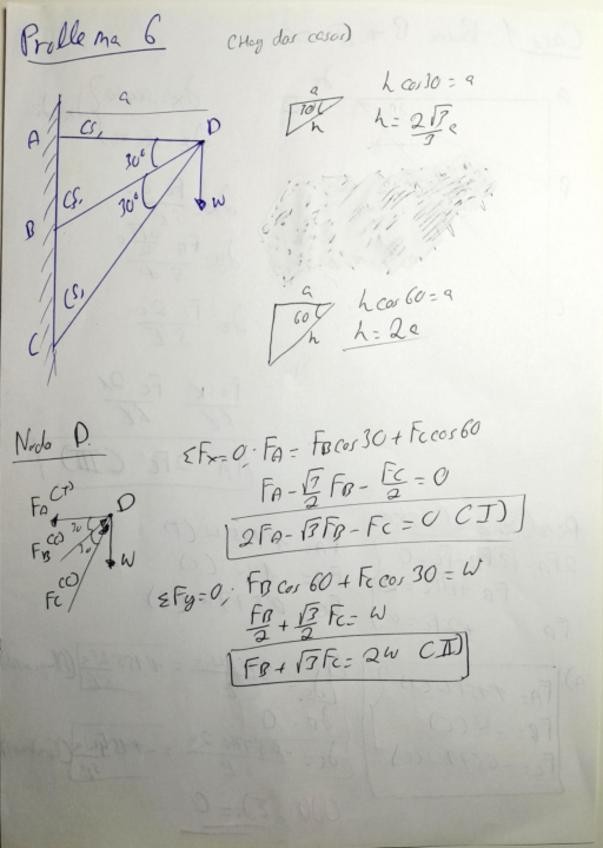 Problema 6
(Hay dos casos)
a
A
CS,
D
30°
30°
CS,
B
W
CS,
C
a
30
h
h cos30 = a
h = 2√3/3 a
a
60
h
h cos 60 = a
h = 2a
Nodo D.
FA (T)
D
30
FB (C)
30
W
FC (C)
ΣFx=0; FA = FB cos 30 + FC cos 60
FA - √3/2 FB - FC/2 = 0
2FA - √3FB - FC = 0 (I)
ΣFy=0; FB cos 60 + FC cos 30 = W
FB/2 + √3/2 FC = W
FB + √3 FC = 2W (II)